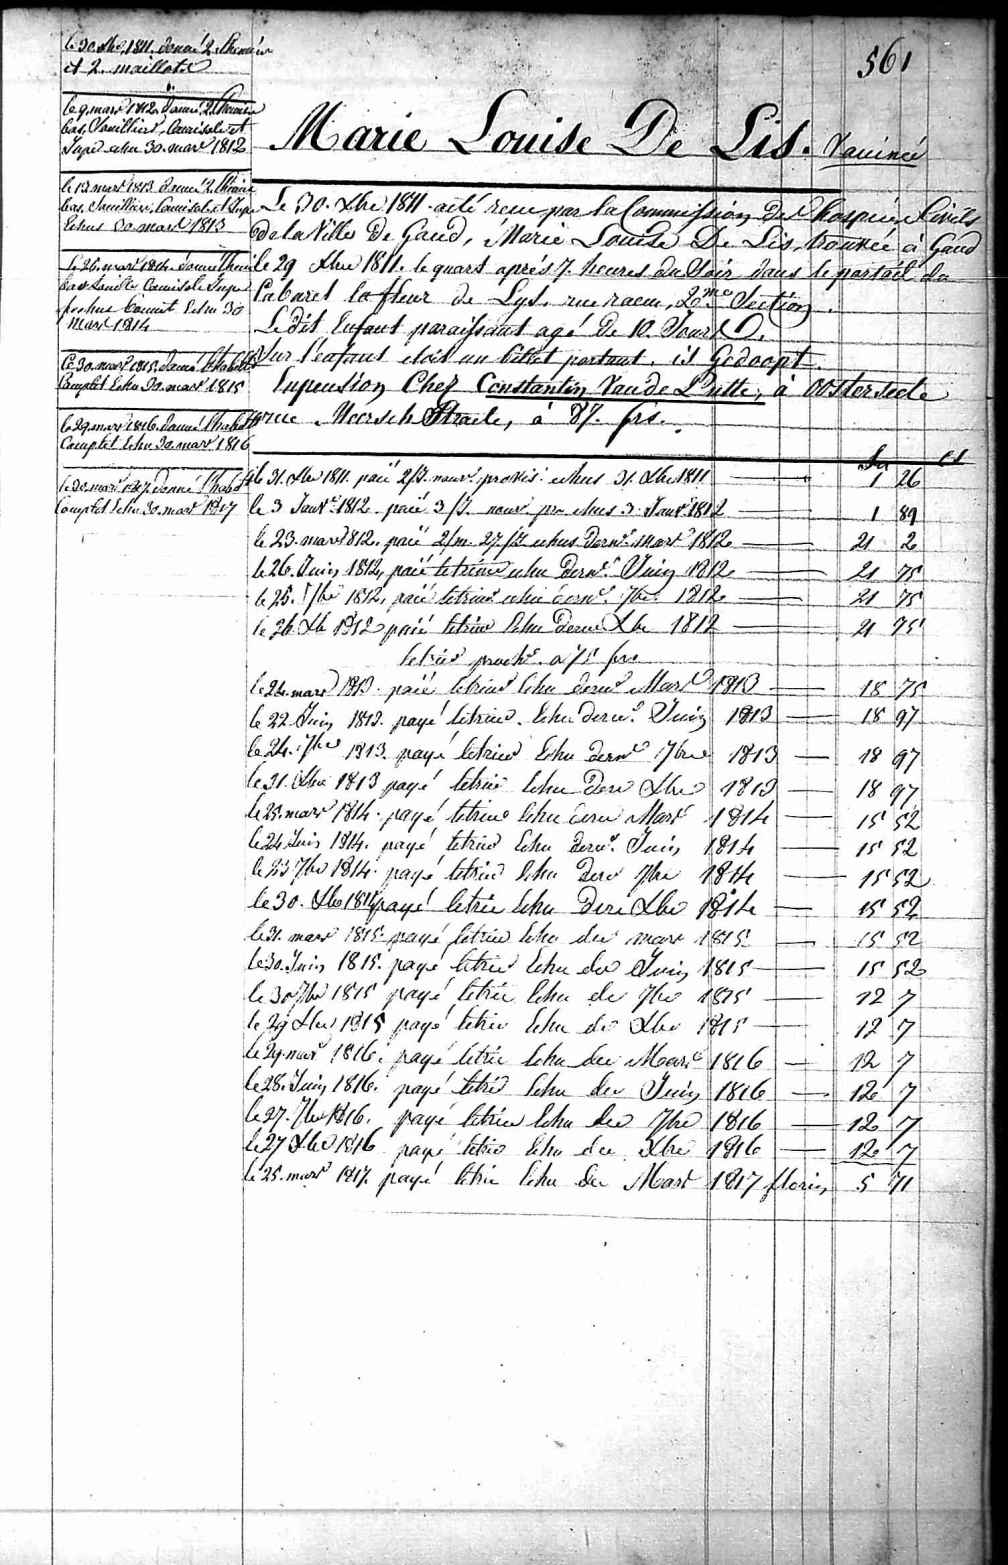 561
le 30 Xbre 1811. donné 2. Chemises
et 2. maillots
le 9. mars 1812. donné 2 Chemises
bas, Souilliers, Camisole et
Jupe echu 30. mars 1812
le 13 mars 1813 donné 2. Chemises
bas, Souilliers, Camisole et Jupe
Echus 30 mars 1813
le 26. mars 1814. donné Chemise
bas Camisole Jupe
Bonnet Echu 30
Mars 1814
le 30. mars 1815. donné l'habill
Complet Echu 30. mars 1815
le 29. mars 1816. donné l'habill
Complet Echu 30. mars 1816
le 20 mars 1817. donné l'habill
Complet Echu 30. mars 1817
Marie Louise De Lis. Vaccinée
Le 30. Xbre 1811 a été recue par la Commission des hospices Civils
de la Ville De Gand, Marie Louise De Lis, trouvée à Gand
le 29 Xbre 1811. le quart aprés 7. heures du Soir dans le portail du
Cabaret la fleur de Lys, rue 2.me Section.
Le dit Enfant paraissant agé de 10. Jours.
Sur l'enfant etoit un billet portant. is Gedoopt.
En pension Chez Constantin Van de Putte, à Oosterseele
rue Meersch Straete, à 87. frs.
frs Cs
le 31. Xbre 1811. paié 2/3. nour. provis. echus 31 Xbre 1811 1 26
le 3 Janv. 1812. paié 3/3. nour. pro echus 3. Janv. 1812 1 89
le 23. mars 1812. paié 2/m. 27/3 echus dern. mars 1812 21 2
le 26. Juin 1812, paié le trim echu dern. Juin 1812 21 75
le 25. 7bre 1812, paié le trim echu dern. 7bre 1812 21 75
le 26. Xb 1812 paié le trim Echu dern Xbre 1812 21 75
le trim proch. a 75 frs
le 24. mars 1813. paié le trim Echu dern Mars 1813 18 75
le 22 Juin 1813. payé le trim. Echu dern. Juin 1813 18 97
le 24. 7bre 1813. payé le trim Echu dern 7bre 1813 18 97
le 31. Xbre 1813 payé le trim Echu dern Xbre 1813 18 97
le 25. mars 1814. payé le trim Echu dern Mars 1814 15 52
le 24 Juin 1814. payé le trim Echu dern. Juin 1814 15 52
le 23 7bre 1814. payé le trim Echu dern 7bre 1814 15 52
le 30. Xbre 1814 payé le trim Echu dern Xbre 1814 15 52
le 31. mars 1815. payé le trim Echu der mars 1815 15 52
le 30. Juin 1815. payé le trim Echu der Juin 1815 15 52
le 30 7bre 1815 payé le trim Echu de 7bre 1815 12 7
le 29 Xbre 1815 payé le trim Echu de Xbre 1815 12 7
le 29. mars 1816. payé le trim Echu der Mars 1816 12 7
le 28. Juin 1816. payé le trim Echu der Juin 1816 12 7
le 27. 7bre 1816. payé le trim Echu der 7bre 1816 12 7
le 27 Xbre 1816 payé le trim Echu der Xbre 1816 12 7
le 25. mars 1817. payé le trim Echu der Mars 1817 florins 5 71